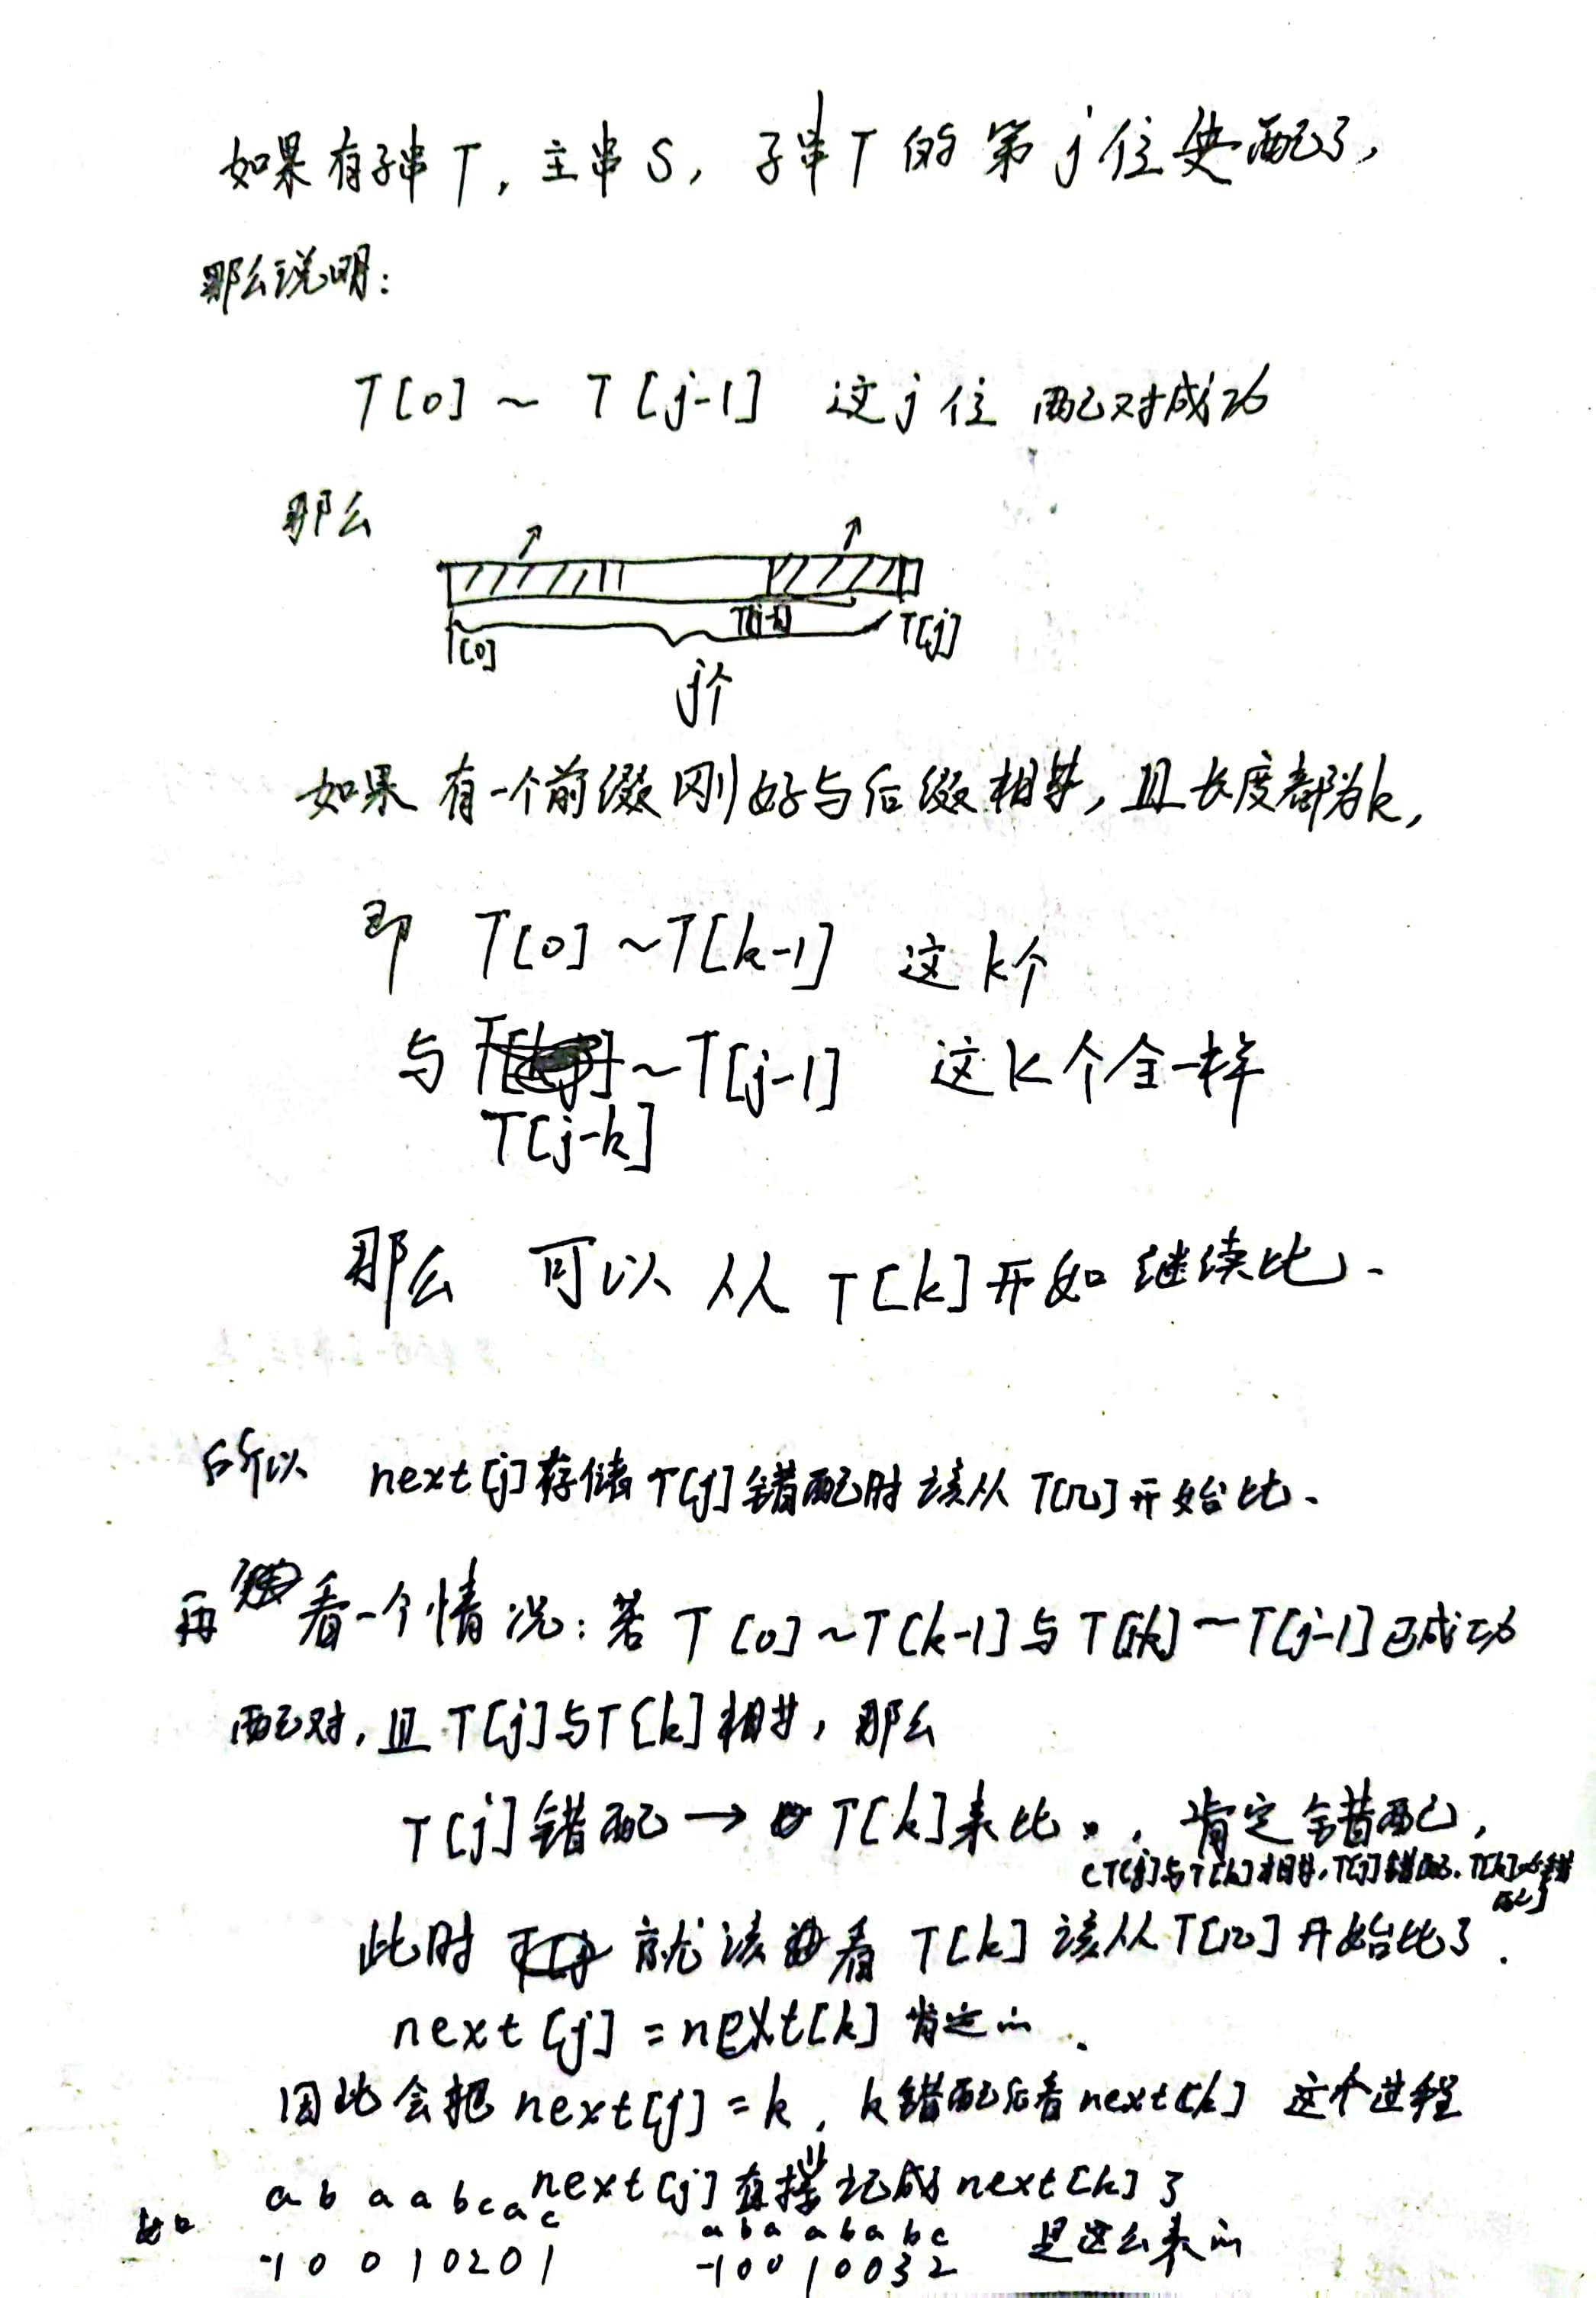 如果有子串T,主串S,子串T的第j位失配了,
那么说明:
T[0] ~ T[j-1] 这j位 配对成功
那么
T[0] T[j-k] T[j]
j个
如果 有一个前缀刚好与后缀相等,且长度都为k,
即 T[0] ~T[k-1] 这k个
与 ~T[j-1] 这k个全一样
T[j-k]
那么 可以 从 T[k]开始 继续比.
所以 next[j]存储T[j]错配时该从T[几]开始比.
再看一个情况:若 T[0] ~T[k-1]与T[j-k]~T[j-1]已成功
配对,且T[j]与T[k]相等,那么
T[j]错配→T[k]来比,肯定错配,
(T[j]与T[k]相等,T[j]错配,T[k]必错
配)
此时 就该看 T[k]该从T[几]开始比了.
next[j] =next[k] 肯定的.
因此会把 next[j] = k, k错配后看next[k] 这个过程
⇓
next[j]直接记成next[k]了
如 a b a a b c a c a b a a b a b c 是这么来的
-1 0 0 1 0 2 0 1 -1 0 0 1 0 0 3 2